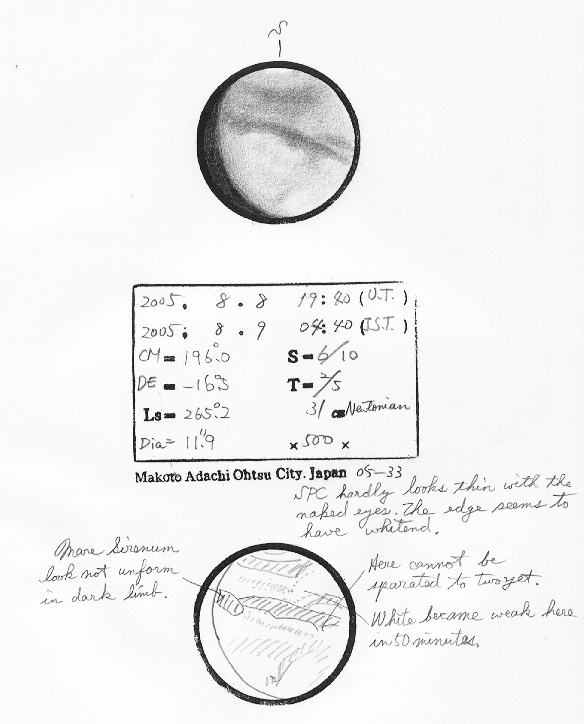 S
2005. 8. 8 19:40 (U.T.)
2005. 8. 9 04:40 (J.S.T.)
CM = 196.°0 S = 6/10
DE = -16.°5 T = 2/5
Ls = 265.°2 31 cm Newtonian
Dia = 11."9 × 500 ×
Makoto Adachi Ohtsu City. Japan 05-33
SPC hardly looks thin with the
naked eyes. The edge seems to
have whitend.
Mare Sirenum
look not unform
in dark limb.
Here cannot be
sparated to two yet.
White became weak here
in 50 minutes.